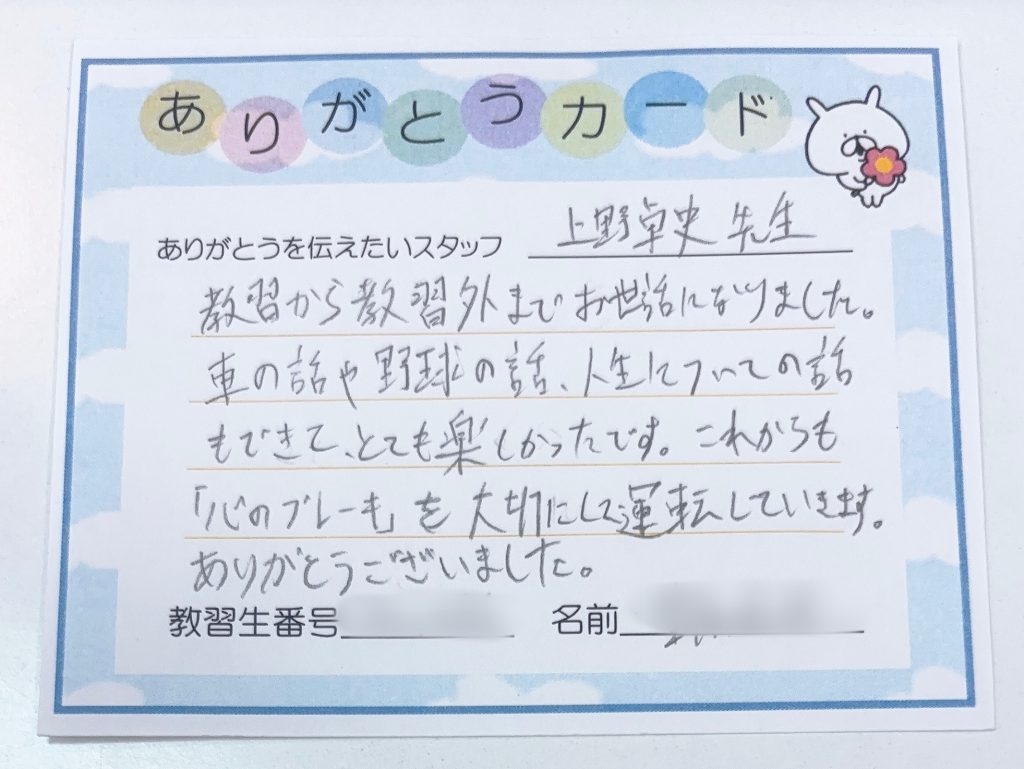 ありがとうカード
ありがとうを伝えたいスタッフ 上野卓史 先生
教習から教習外までお世話になりました。
車の話や野球の話、人生についての話
もできて、とても楽しかったです。これからも
「心のブレーキ」を大切にして運転していきます。
ありがとうございました。
教習生番号
名前